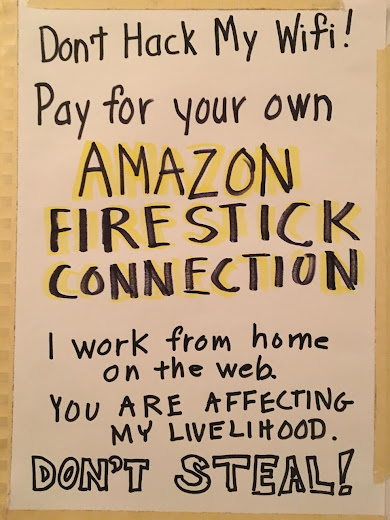 Don't Hack My Wifi!
Pay for your own
AMAZON
FIRESTICK
CONNECTION
I work from home
on the web.
YOU ARE AFFECTING
MY LIVELIHOOD.
DON'T STEAL!